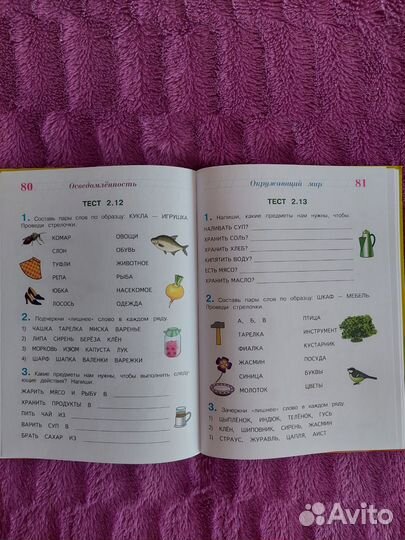 80 Осведомлённость
ТЕСТ 2.12
1. Составь пары слов по образцу: КУКЛА — ИГРУШКА.
Проведи стрелочки.
КОМАР ОВОЩИ
СЛОН ОБУВЬ
ТУФЛИ ЖИВОТНОЕ
РЕПА РЫБА
ЮБКА НАСЕКОМОЕ
ЛОСОСЬ ОДЕЖДА
2. Подчеркни «лишнее» слово в каждом ряду.
1) ЧАШКА ТАРЕЛКА МИСКА ВАРЕНЬЕ
2) ЛИПА СИРЕНЬ БЕРЁЗА КЛЁН
3) МОРКОВЬ ИЗЮМ КАПУСТА ЛУК
4) ШАРФ ШАПКА ВАЛЕНКИ ВАРЕЖКИ
3. Какие предметы нам нужны, чтобы выполнить следу-
ющие действия? Напиши.
ЖАРИТЬ МЯСО И РЫБУ В
ХРАНИТЬ ПРОДУКТЫ В
ПИТЬ ЧАЙ ИЗ
ВАРИТЬ СУП В
БРАТЬ САХАР ИЗ
Окружающий мир 81
ТЕСТ 2.13
1. Напиши, какие предметы нам нужны, чтобы:
НАЛИВАТЬ СУП?
ХРАНИТЬ СОЛЬ?
ХРАНИТЬ ХЛЕБ?
КИПЯТИТЬ ВОДУ?
ЕСТЬ МЯСО?
ХРАНИТЬ МАСЛО?
2. Составь пары слов по образцу: ШКАФ — МЕБЕЛЬ.
Проведи стрелочки.
А, Б, В ПТИЦА
ТАРЕЛКА ИНСТРУМЕНТ
ФИАЛКА КУСТАРНИК
ЖАСМИН ПОСУДА
СИНИЦА БУКВЫ
МОЛОТОК ЦВЕТЫ
3. Зачеркни «лишнее» слово в каждом ряду.
1) ЦЫПЛЁНОК, ИНДЮК, ТЕЛЁНОК, ГУСЬ
2) КЛЁН, ШИПОВНИК, СИРЕНЬ, ЖАСМИН
3) СТРАУС, ЖУРАВЛЬ, ЦАПЛЯ, АИСТ
Avito